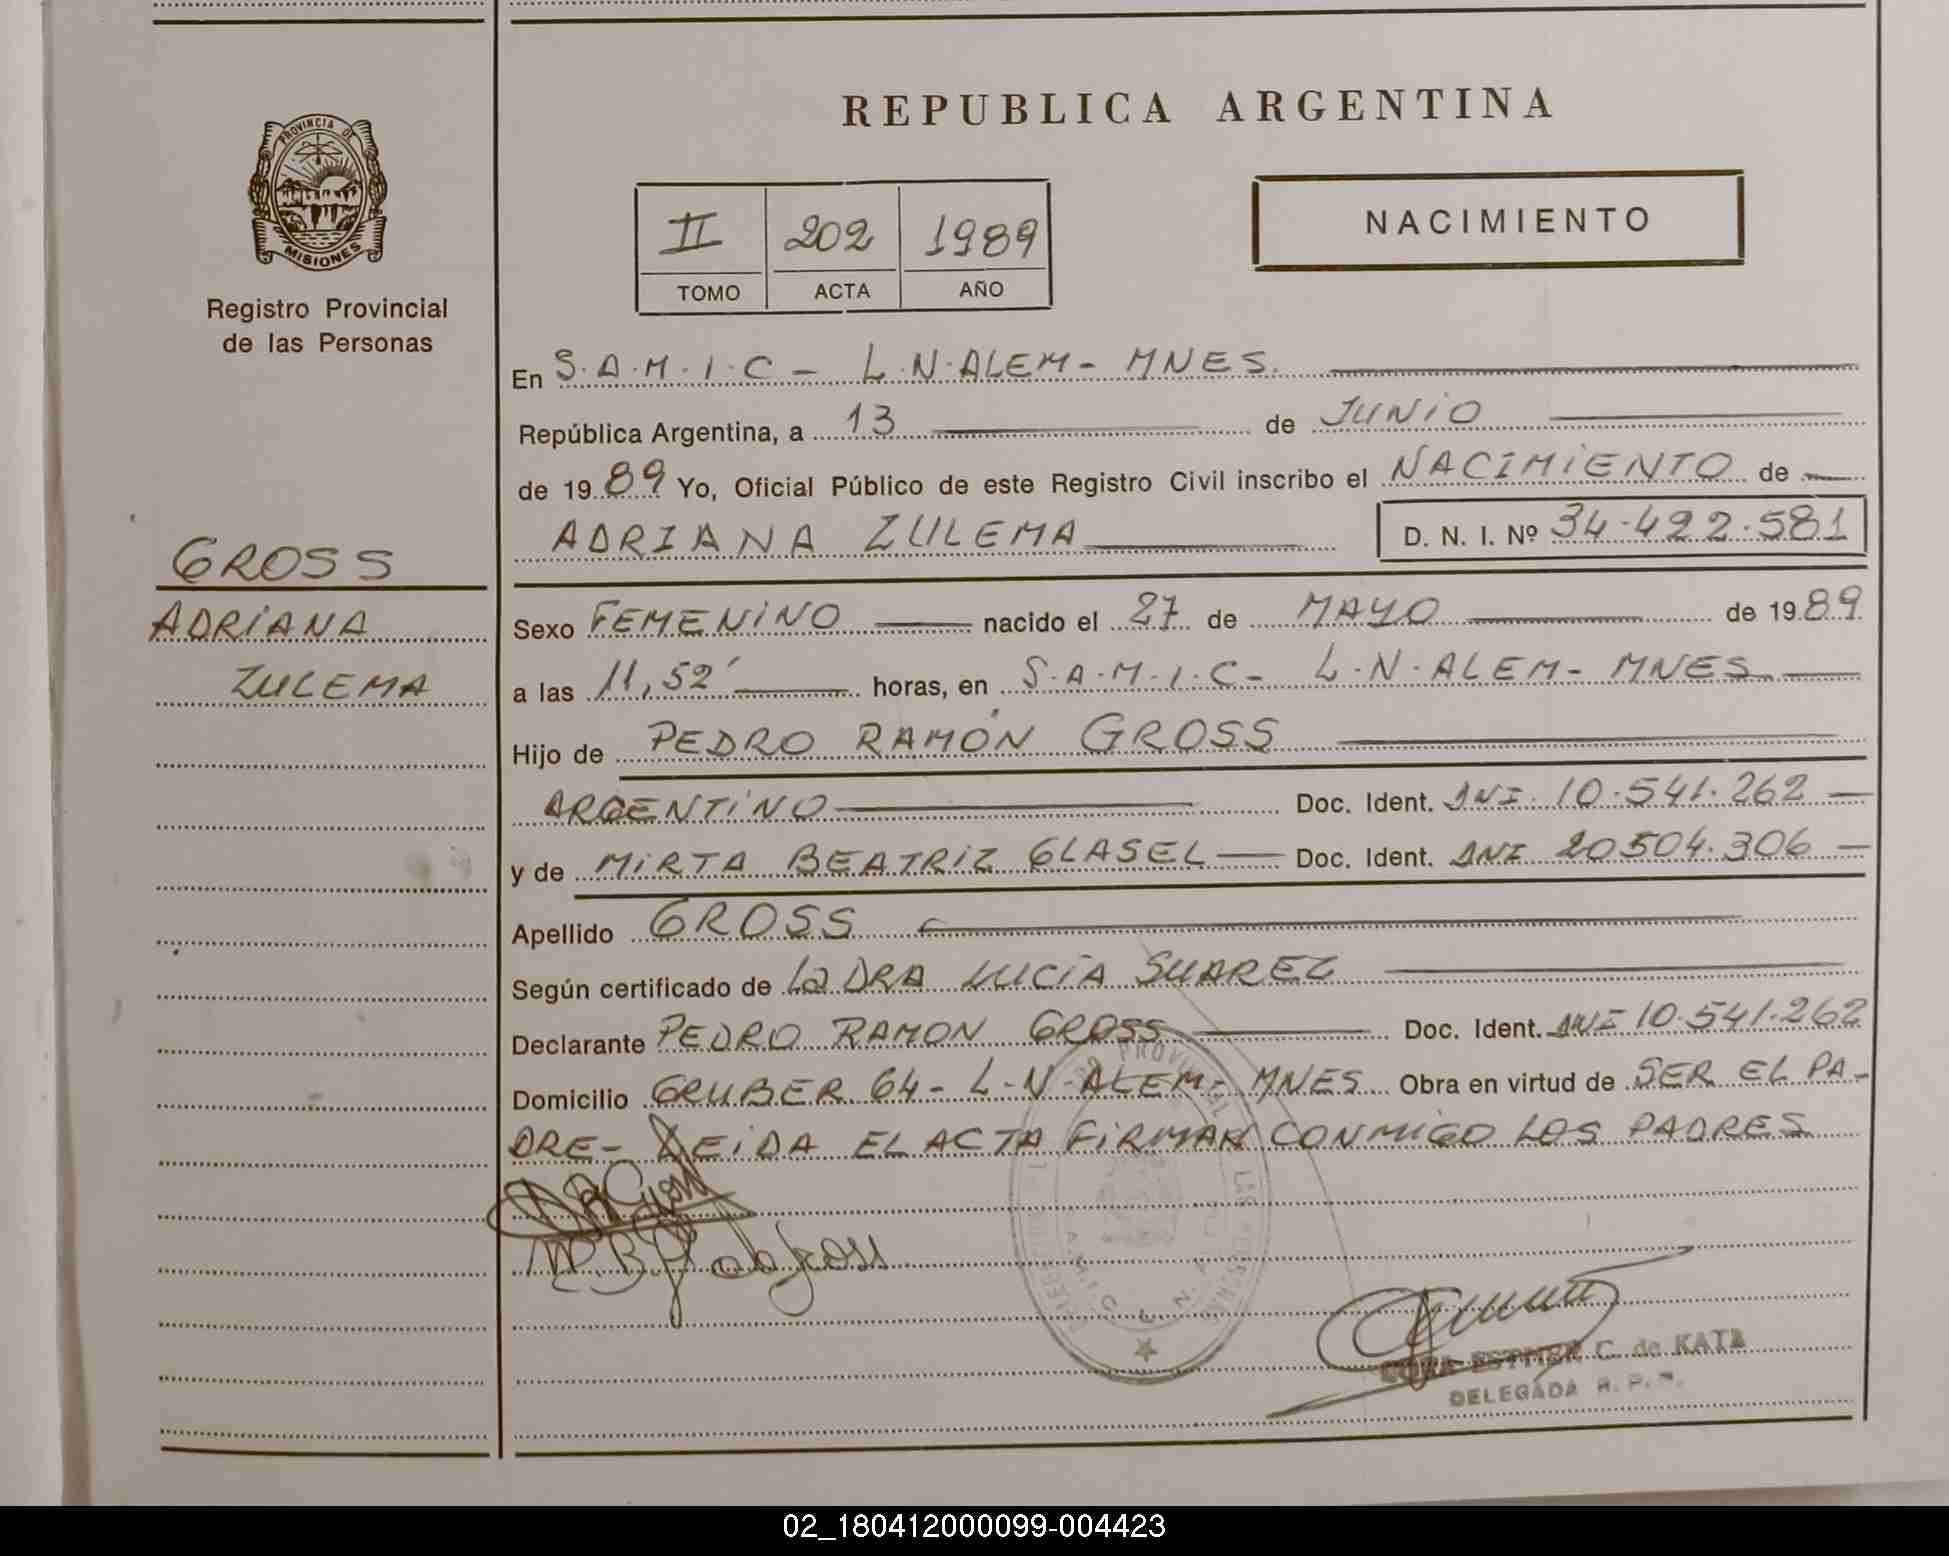 REPUBLICA ARGENTINA
PROVINCIA DE
MISIONES
Registro Provincial
de las Personas
II 202 1989
TOMO ACTA AÑO
NACIMIENTO
En S.A.M.I.C - L.N.ALEM - MNES.
República Argentina, a 13 de JUNIO
de 1989 Yo, Oficial Público de este Registro Civil inscribo el NACIMIENTO de
ADRIANA ZULEMA D. N. I. Nº 34.422.581
GROSS
ADRIANA
ZULEMA
Sexo FEMENINO nacido el 27 de MAYO de 1989
a las 11,52' horas, en S.A.M.I.C- L.N.ALEM- MNES
Hijo de PEDRO RAMÓN GROSS
ARGENTINO Doc. Ident. DNI. 10.541.262
y de MIRTA BEATRIZ GLASEL Doc. Ident. DNI 20504.306
Apellido GROSS
Según certificado de La DRA LUCÍA SUAREZ
Declarante PEDRO RAMON GROSS Doc. Ident. DNI 10.541.262
Domicilio GRUBER 64- L-N-ALEM- MNES Obra en virtud de SER EL PA-
DRE- LEIDA EL ACTA FIRMAN CONMIGO LOS PADRES
ESTHER C. de KATZ
DELEGADA R. P. P.
02_180412000099-004423